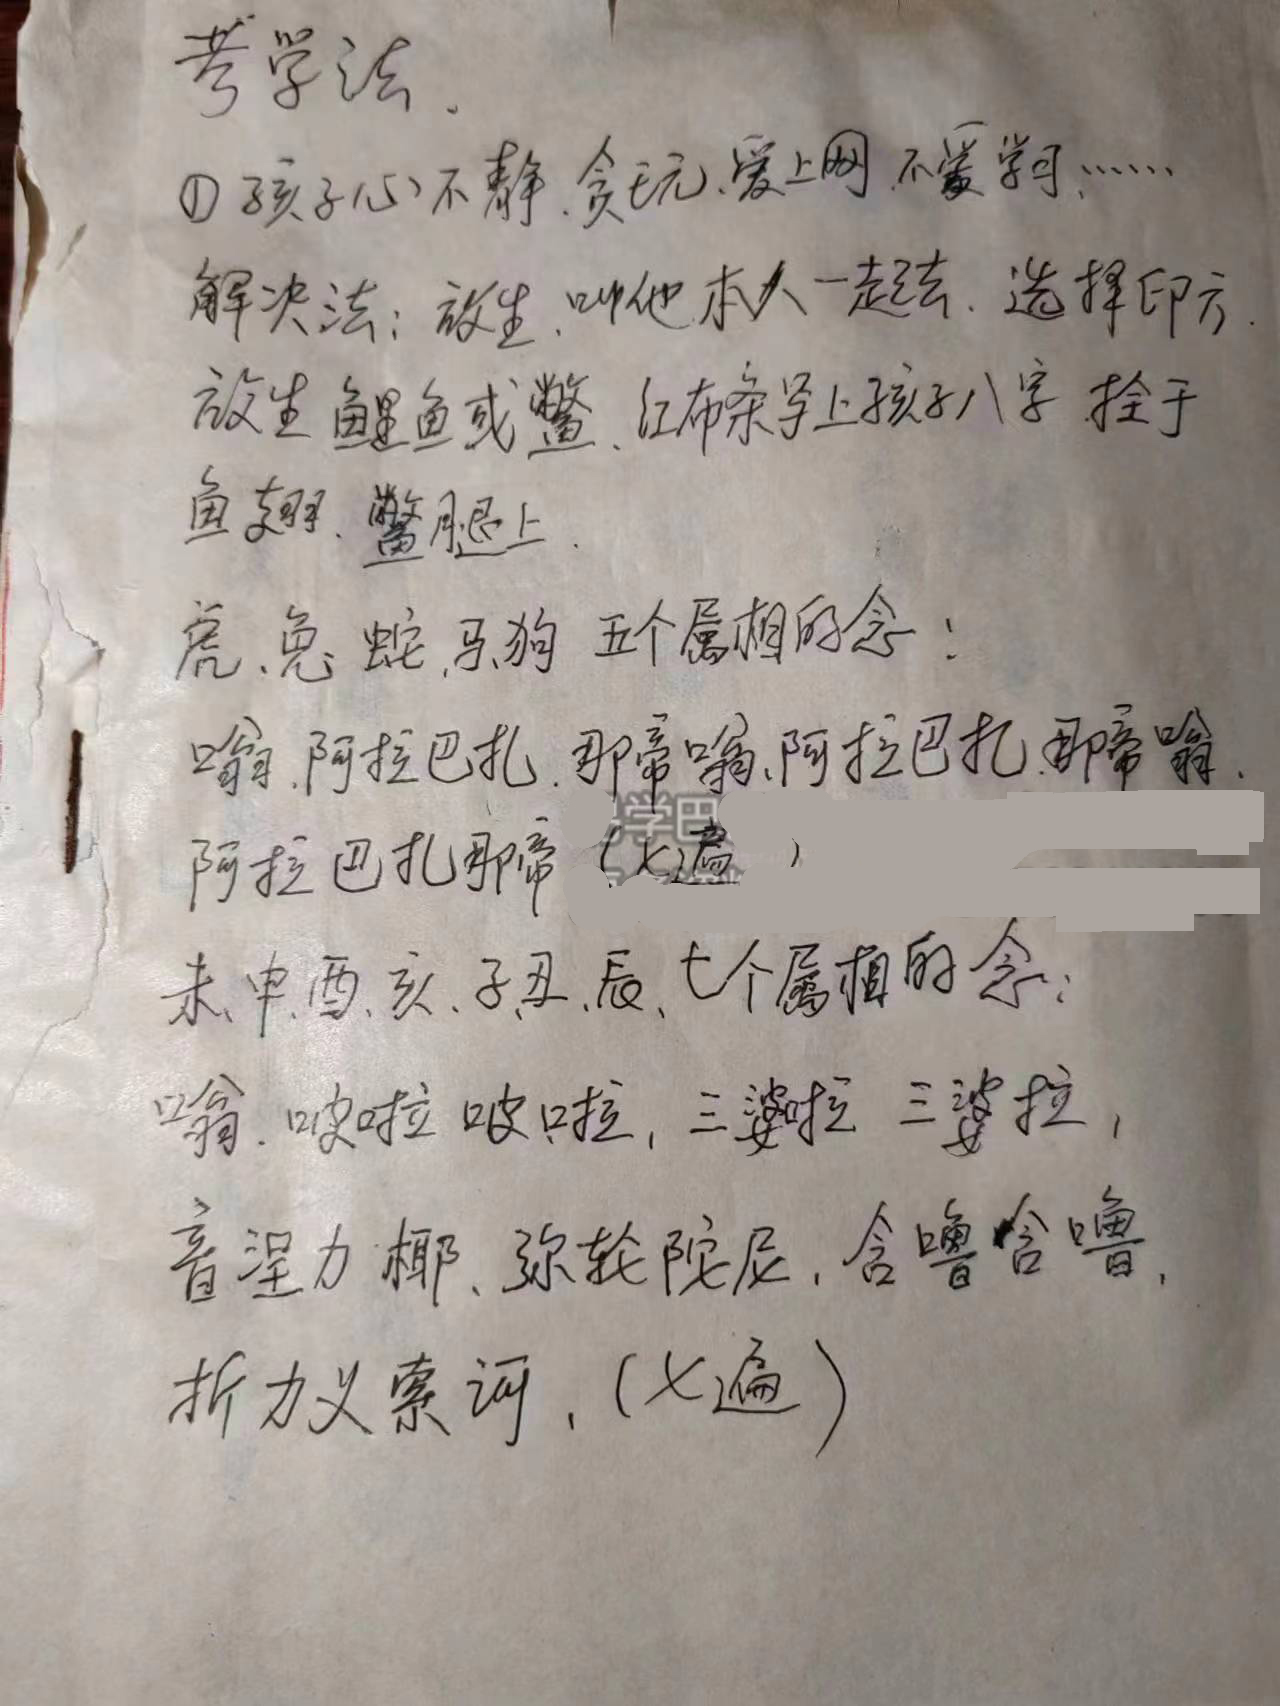 考学法.
①孩子心不静.贪玩.爱上网.不爱学习.……
解决法:放生.叫他本人一起去.选择印方.
放生鲤鱼或鳖.红布条写上孩子八字 拴于
鱼翅.鳖腿上.
虎、兔、蛇、马、狗 五个属相的念:
嗡.阿拉巴扎.那帝嗡.阿拉巴扎.那帝嗡.
阿拉巴扎那帝(七遍)
未、申、酉、亥、子、丑、辰、七个属相的念:
嗡.呅啦 呅啦,三婆啦 三婆拉,
音涅力椰、弥轮陀尼,含噜含噜,
折力义索诃,(七遍)